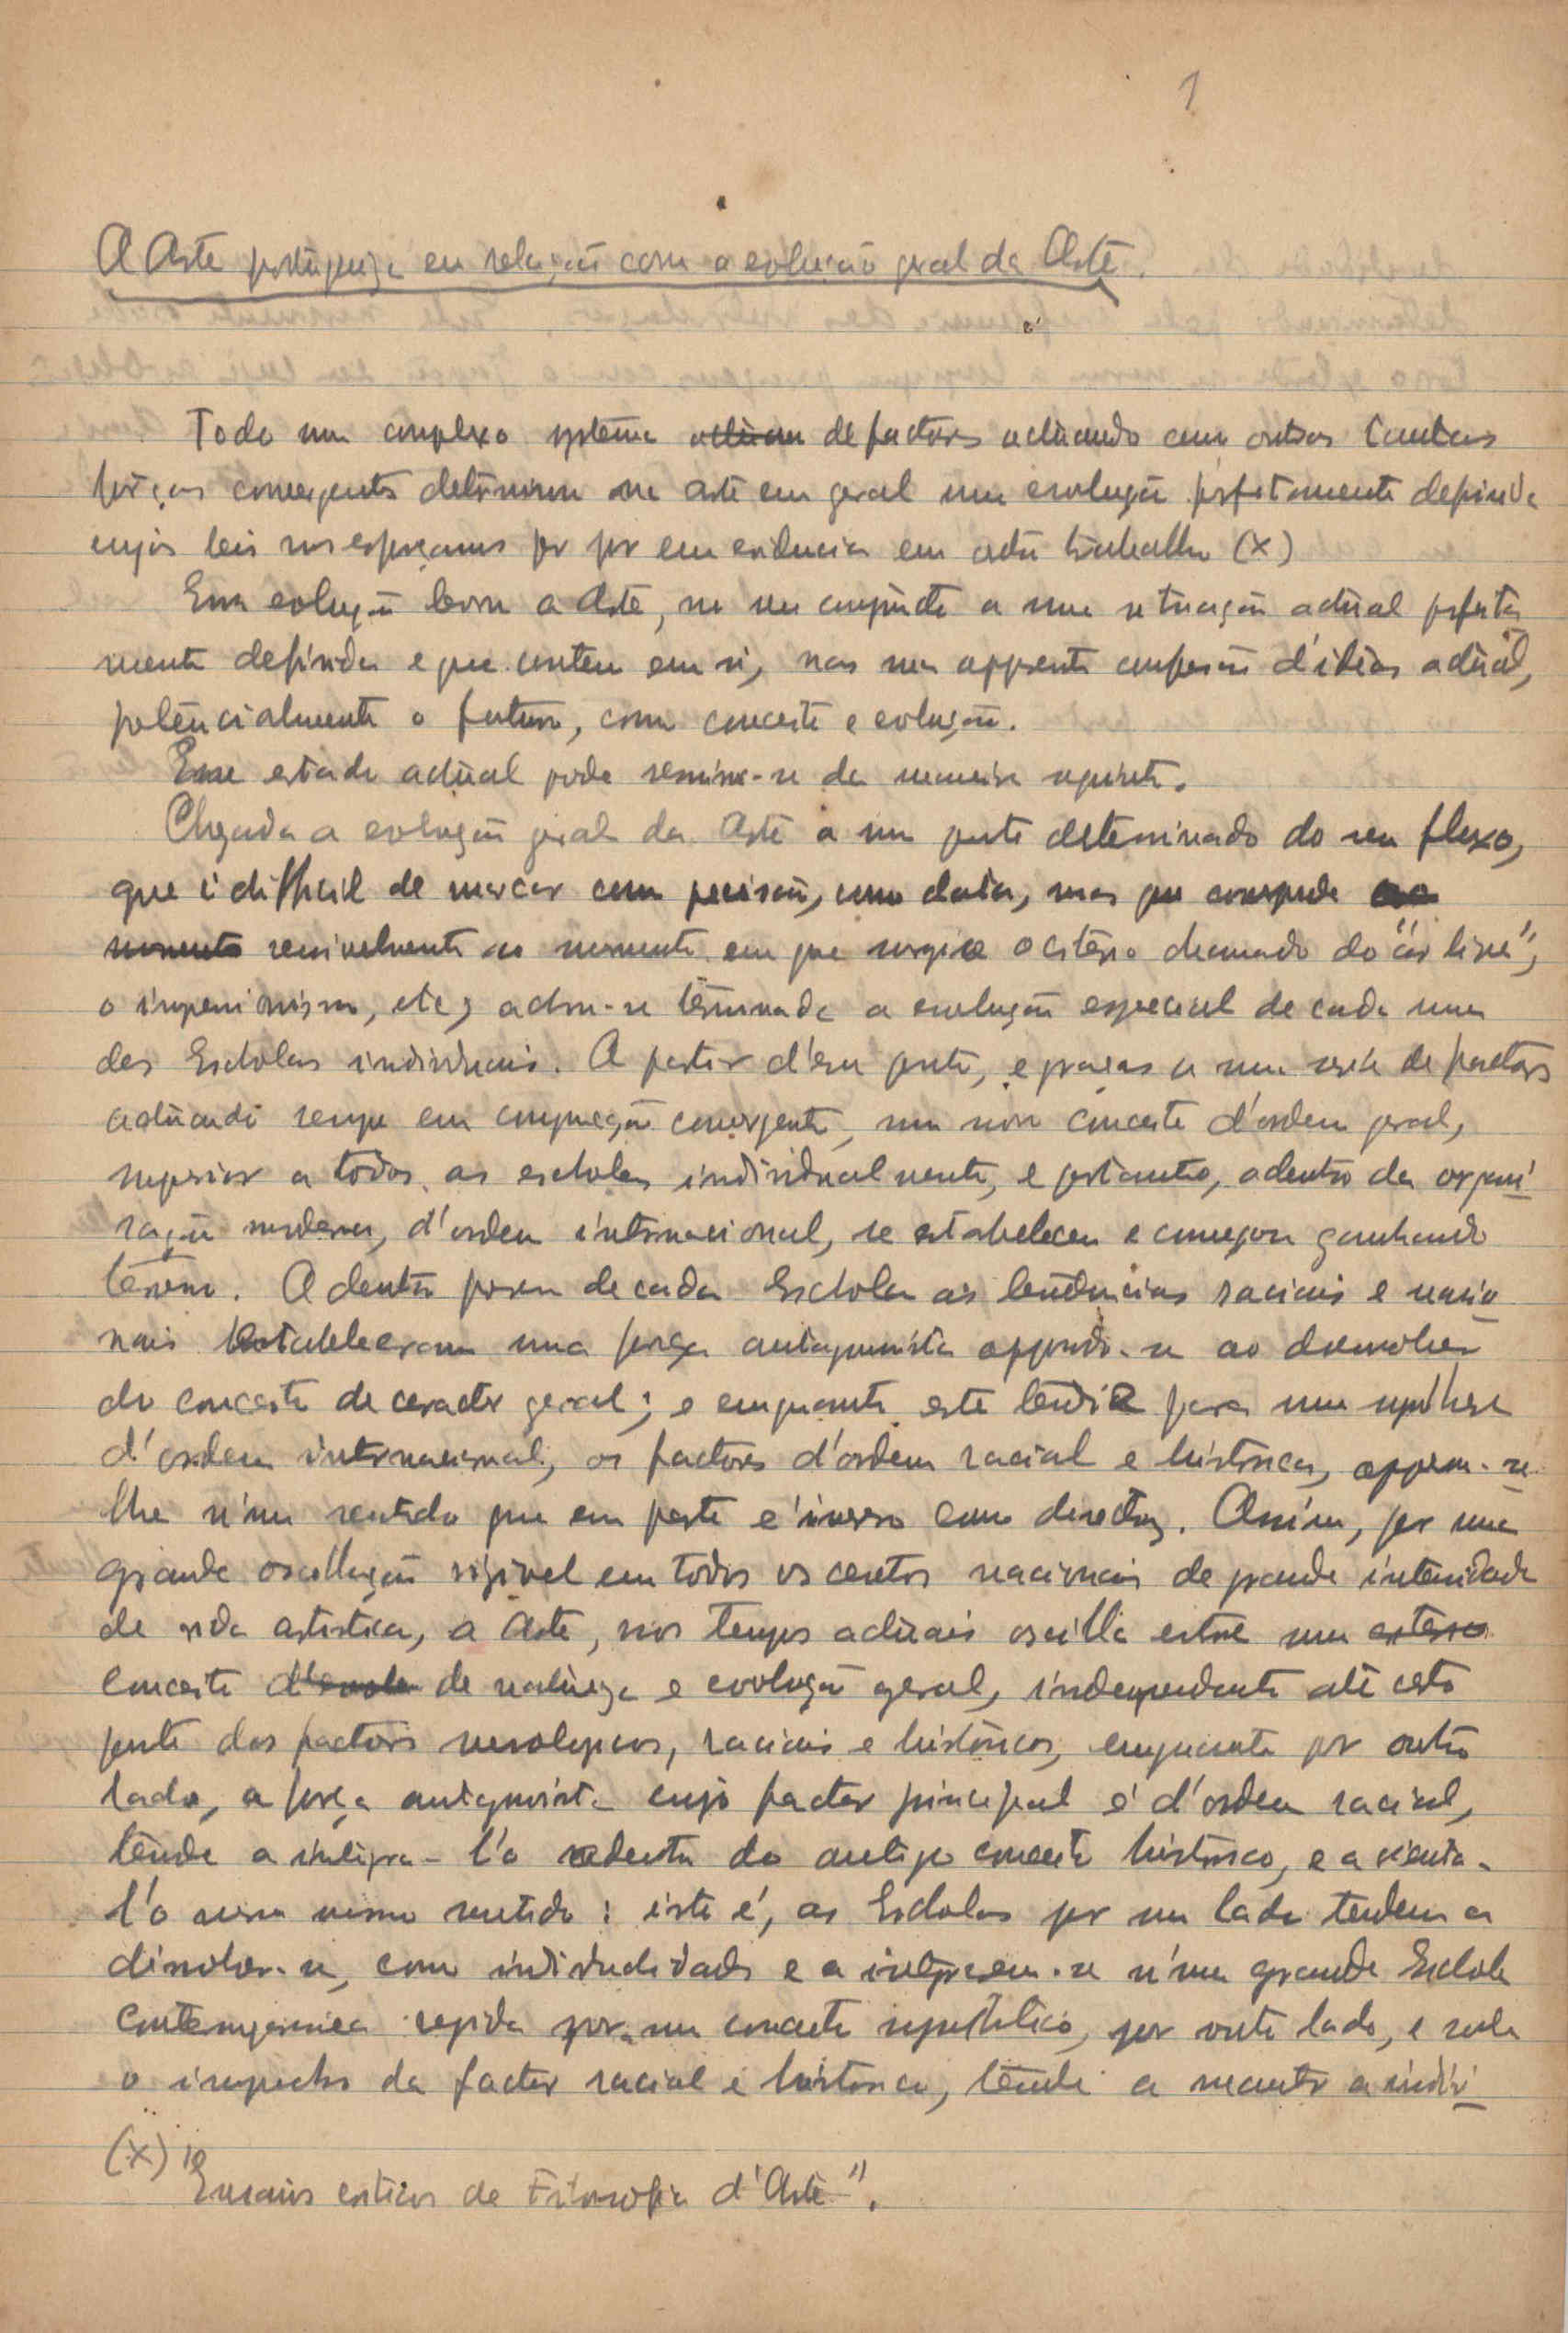 1
A Arte portugueza em relação com a evolução geral da Arte.
Todo um complexo systema actuam de factores actuando como outras tantas
forças convergentes determinam na arte em geral uma evolução perfeitamente definida
cujas leis nos esforçamos por pôr em evidencia em outro trabalho (x)
Essa evolução leva a Arte, no seu conjuncto a uma situação actual perfeita
mente definida e que contem em si, na sua apparente confusão d'idéas actual,
potencialmente o futuro, como conceito e evolução.
Esse estado actual pode resumir-se da maneira seguinte.
Chegada a evolução geral da Arte a um ponto determinado do seu fluxo,
que é difficil de marcar com precisão, como data, mas que corresponde ao
momento sensivelmente ao momento em que surgiu o critério chamado do "ar livre",
o impressionismo, etc, achou-se terminada a evolução especial de cada uma
das Escholas individuais. A partir d'esse ponto, e graças a uma serie de factores
actuando sempre em conjugação convergente, um novo conceito d'ordem geral,
superior a todas as escholas individualmente, e portanto, adentro da organi
sação moderna, d'ordem internacional, se estabeleceu e começou ganhando
terreno. Adentro porem de cada Eschola as tendencias raciais e nacio
nais estabeleceram uma força antagonista oppondo-se ao desenvolver
do conceito de caracter geral; e emquanto este tendia para uma synthese
d'ordem internacional, os factores d'ordem racial e historica, oppoem-se
lhe n'um sentido que em parte é inverso como direcção. Assim, por uma
grande oscillação visivel em todos os centros nacionais de grande intensidade
de vida artistica, a Arte, nos tempos actuais oscilla entre um
conceito de natureza e evolução geral, independente até certo
ponto dos factores mesologicos, raciais e históricos, emquanto por outro
lado, a força antagonista cujo factor principal é d'ordem racial,
tende a integra-l'o adentro do antigo conceito histórico, e a orienta-
l'o nesse mesmo sentido: isto é, as Escholas por um lado tendem a
dissolver-se, como individualidades e a integrarem-se n'uma grande Eschola
contemporanea regida por um conceito synthetico, por outro lado, e sob
o impecto do factor racial e historico, tende a manter a indivi
(x) "Ensaios criticos de Filosofia d'Arte".